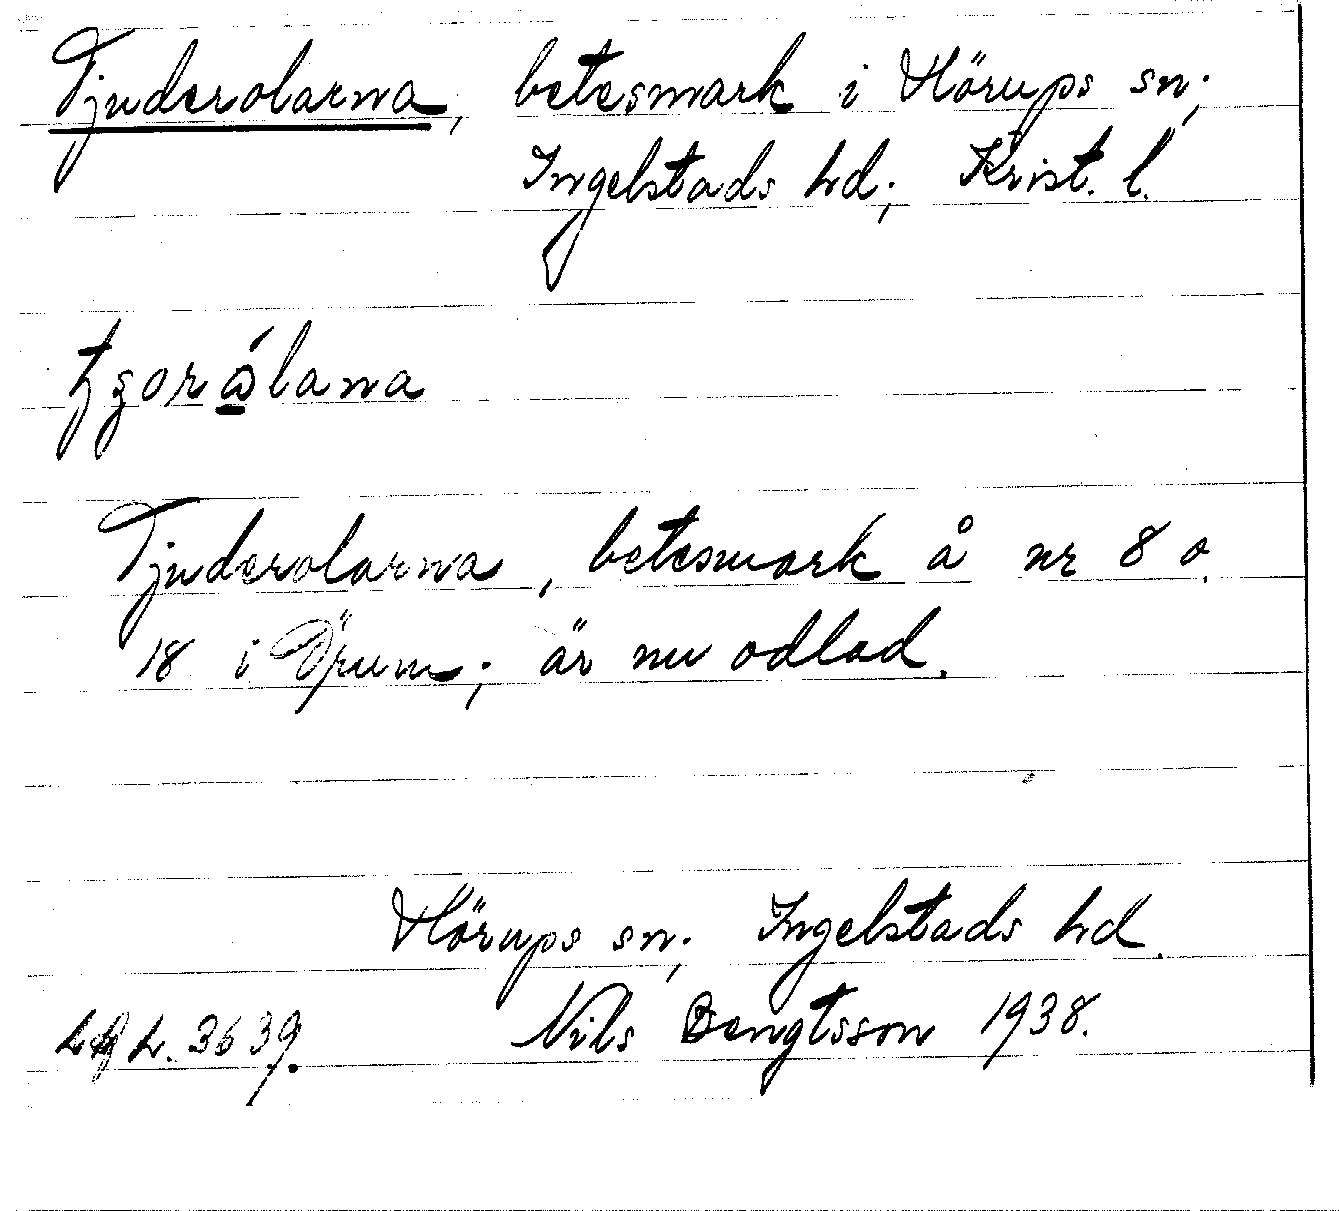 Tjuderolarna, betesmark i Hörups sn;
Ingelstads hd; Krist. l.
Tjuderolarna, betesmark å nr 8 o.
18 i Örum; är nu odlad.
Hörups sn; Ingelstads hd.
3639. Nils Bengtsson 1938.